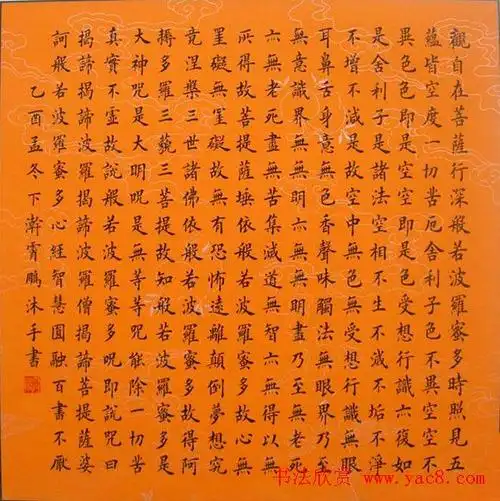 觀自在菩薩行深般若波羅蜜多時照見五
蘊皆空度一切苦厄舍利子色不異空空不
異色色即是空空即是色受想行識亦復如
是舍利子是諸法空相不生不滅不垢不淨
不增不減是故空中無色無受想行識無眼
耳鼻舌身意無色香聲味觸法無眼界乃至
無意識界無無明亦無無明盡乃至無老死
亦無老死盡無苦集滅道無智亦無得以無
所得故菩提薩埵依般若波羅蜜多故心無
罣礙無罣礙故無有恐怖遠離顛倒夢想究
竟涅槃三世諸佛依般若波羅蜜多故得阿
耨多羅三藐三菩提故知般若波羅蜜多是
大神咒是大明咒是無等等咒能除一切苦
真實不虛故說般若波羅蜜多咒即說咒曰
揭諦揭諦波羅揭諦波羅僧揭諦菩提薩婆
訶般若波羅蜜多心經智慧圓融百書不厭
乙酉孟冬下澣霄鵬沐手書
书法欣赏 www.yac8.com